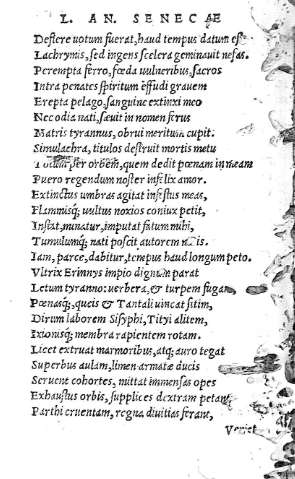 L. AN. SENECAE
Deflere uotum fuerat, haud tempus datum est
Lachrymis, sed ingens scelera geminauit nefas.
Perempta ferro, fœda uulneribus, sacros
Intra penates spiritum effudi grauem
Erepta pelago, sanguine extinxi meo
Nec odia nati, sæuit in nomen ferus
Matris tyrannus, obrui meritum cupit.
Simulachra, titulos destruit mortis metu
Totum per orbem, quem dedit pœnam in meam
Puero regendum noster infelix amor.
Extinctus umbras agitat infestus meas,
Flammisq; uultus noxios coniux petit,
Instat, minatur, imputat fatum mihi,
Tumulumq; nati poscit autorem
Iam, parce, dabitur, tempus haud longum peto.
Vltrix Erinnys impio dignum parat
Letum tyranno: uerbera, & turpem fugam
Pœnasq; queis & Tantali uincat sitim,
Dirum laborem Sisyphi, Tityi alitem,
Ixionisq; membra rapientem rotam.
Licet extruat marmoribus, atq; auro tegat
Superbus aulam, limen armatæ ducis
Seruent cohortes, mittat immensas opes
Exhaustus orbis, supplices dextram petant
Parthi cruentam, regna diuitias ferant,
Veniet